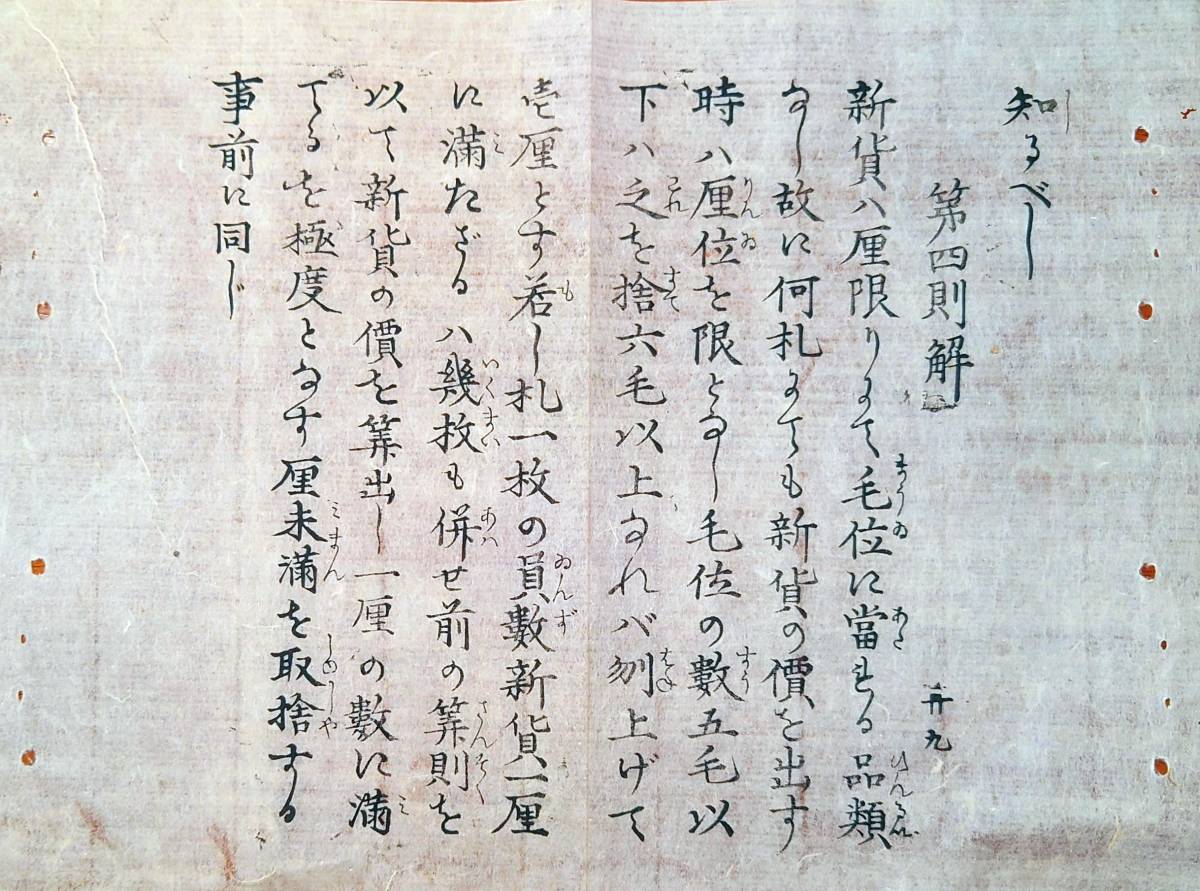 知るべし
第四則解
廾九
新貨ハ厘限りにて毛位に當れる品類
なし故に何札にても新貨の價を出す
時ハ厘位を限となし毛位の數五毛以
下ハ之を捨六毛以上なれバ刎上げて
壱厘とす若し札一枚の員數新貨一厘
に満たざるハ幾枚も併せ前の筭則を
以て新貨の價を筭出し一厘の數に満
てるを極度となす厘未満を取捨する
事前に同じ